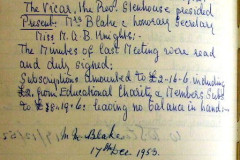 The Vicar, the Revd. Stenhouse presided
Present: Mrs Blake & honorary Secretary
Miss M. A. B. Knights:-
The Minutes of last Meeting was read
and duly signed;
Subscriptions amounted to £2-16-6. including
£2, from Educational Charity & Members Subs
to £38-19-6: leaving no balance in hand:-
Blake
17th Dec 1953.